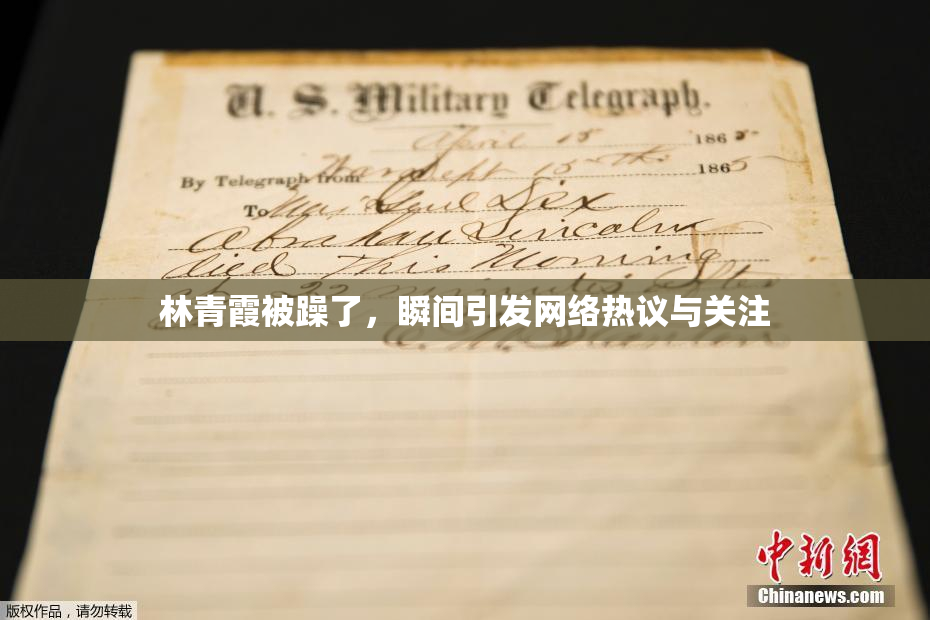 U. S. Military Telegraph.
April 15 1865
By Telegraph from War Dept 15th 1865
To Maj Genl Dix
Abraham Lincoln
died This Morning
at 22 minutes after
林青霞被躁了，瞬间引发网络热议与关注
E. M. Stanton
中新网
Chinanews.com
版权作品，请勿转载